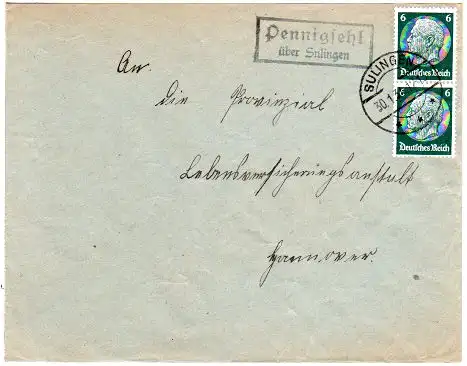 Pennigsehl
über Sulingen
6
Deutsches Reich
6
Deutsches Reich
SULINGEN
30.1.
An
die Provinzial
Lebensversicherungsanstalt
Hannover.